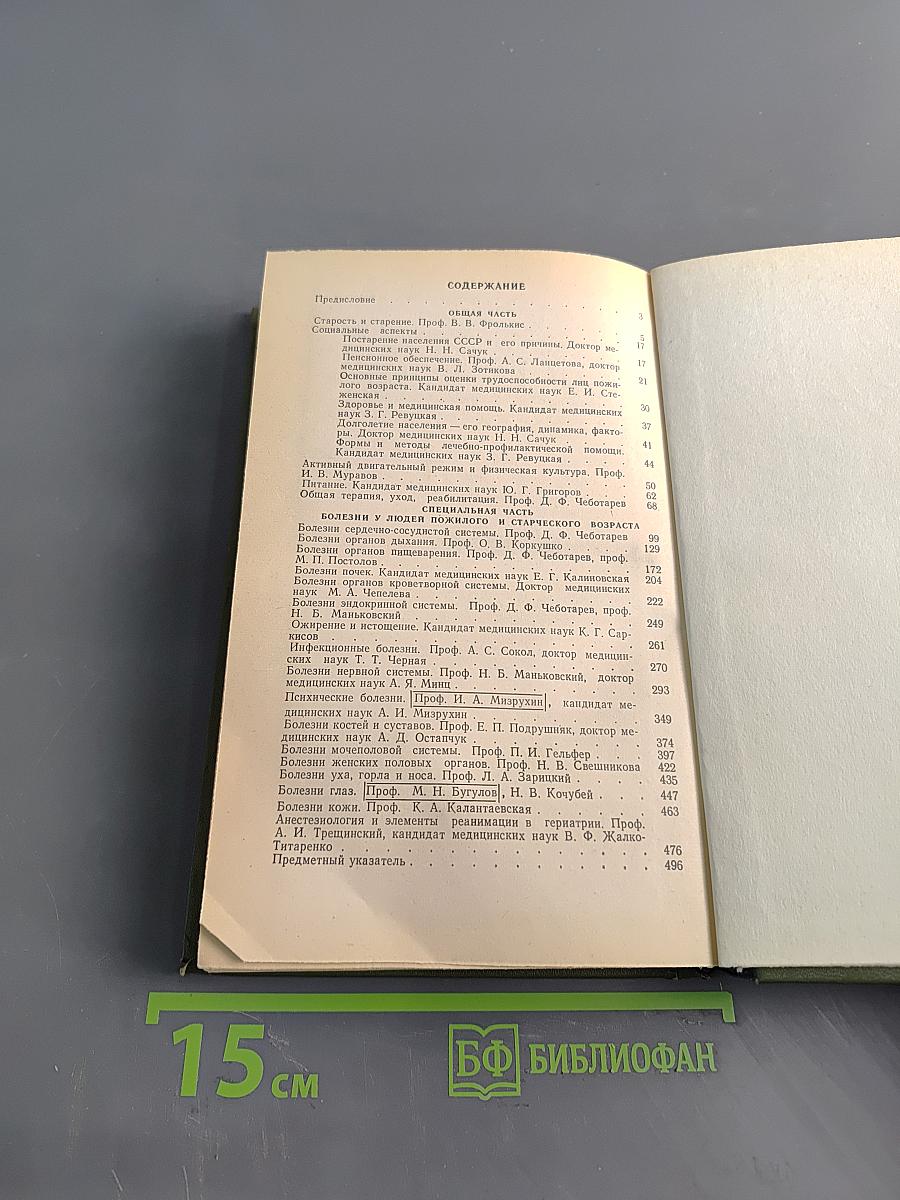 СОДЕРЖАНИЕ
Предисловие . . . . . . . . . . . . . 3
ОБЩАЯ ЧАСТЬ
Старость и старение. Проф. В. В. Фролькис . . . . . . 5
Социальные аспекты . . . . . . . . . . . 17
Постарение населения СССР и его причины. Доктор ме-
дицинских наук Н. Н. Сачук . . . . . . . . 17
Пенсионное обеспечение. Проф. А. С. Ланцетова, доктор
медицинских наук В. Л. Зотикова . . . . . . 21
Основные принципы оценки трудоспособности лиц пожи-
лого возраста. Кандидат медицинских наук Е. И. Сте-
женская . . . . . . . . . . . . 30
Здоровье и медицинская помощь. Кандидат медицинских
наук З. Г. Ревуцкая . . . . . . . . . 37
Долголетие населения — его география, динамика, факто-
ры. Доктор медицинских наук Н. Н. Сачук . . . . 41
Формы и методы лечебно-профилактической помощи.
Кандидат медицинских наук З. Г. Ревуцкая . . . . 44
Активный двигательный режим и физическая культура. Проф.
И. В. Муравов . . . . . . . . . . . 50
Питание. Кандидат медицинских наук Ю. Г. Григоров . . . 62
Общая терапия, уход, реабилитация. Проф. Д. Ф. Чеботарев 68
СПЕЦИАЛЬНАЯ ЧАСТЬ
БОЛЕЗНИ У ЛЮДЕЙ ПОЖИЛОГО И СТАРЧЕСКОГО ВОЗРАСТА
Болезни сердечно-сосудистой системы. Проф. Д. Ф. Чеботарев 99
Болезни органов дыхания. Проф. О. В. Коркушко . . . . 129
Болезни органов пищеварения. Проф. Д. Ф. Чеботарев, проф.
М. П. Постолов . . . . . . . . . . . 172
Болезни почек. Кандидат медицинских наук Е. Г. Калиновская 204
Болезни органов кроветворной системы. Доктор медицинских
наук М. А. Чепелева . . . . . . . . . . 222
Болезни эндокринной системы. Проф. Д. Ф. Чеботарев, проф.
Н. Б. Маньковский . . . . . . . . . . 249
Ожирение и истощение. Кандидат медицинских наук К. Г. Сар-
кисов . . . . . . . . . . . . . 261
Инфекционные болезни. Проф. А. С. Сокол, доктор медицин-
ских наук Т. Т. Черная . . . . . . . . . 270
Болезни нервной системы. Проф. Н. Б. Маньковский, доктор
медицинских наук А. Я. Минц . . . . . . . . 293
Психические болезни. Проф. И. А. Мизрухин, кандидат ме-
дицинских наук А. И. Мизрухин . . . . . . . 349
Болезни костей и суставов. Проф. Е. П. Подрушняк, доктор ме-
дицинских наук А. Д. Остапчук . . . . . . . 374
Болезни мочеполовой системы. Проф. П. И. Гельфер . . . 397
Болезни женских половых органов. Проф. Н. В. Свешникова 422
Болезни уха, горла и носа. Проф. Л. А. Зарицкий . . . . 435
Болезни глаз. Проф. М. Н. Бугулов, Н. В. Кочубей . . . 447
Болезни кожи. Проф. К. А. Калантаевская . . . . . 463
Анестезиология и элементы реанимации в гериатрии. Проф.
А. И. Трещинский, кандидат медицинских наук В. Ф. Жалко-
Титаренко . . . . . . . . . . . . 476
Предметный указатель . . . . . . . . . . 496
15 см
БФ БИБЛИОФАН